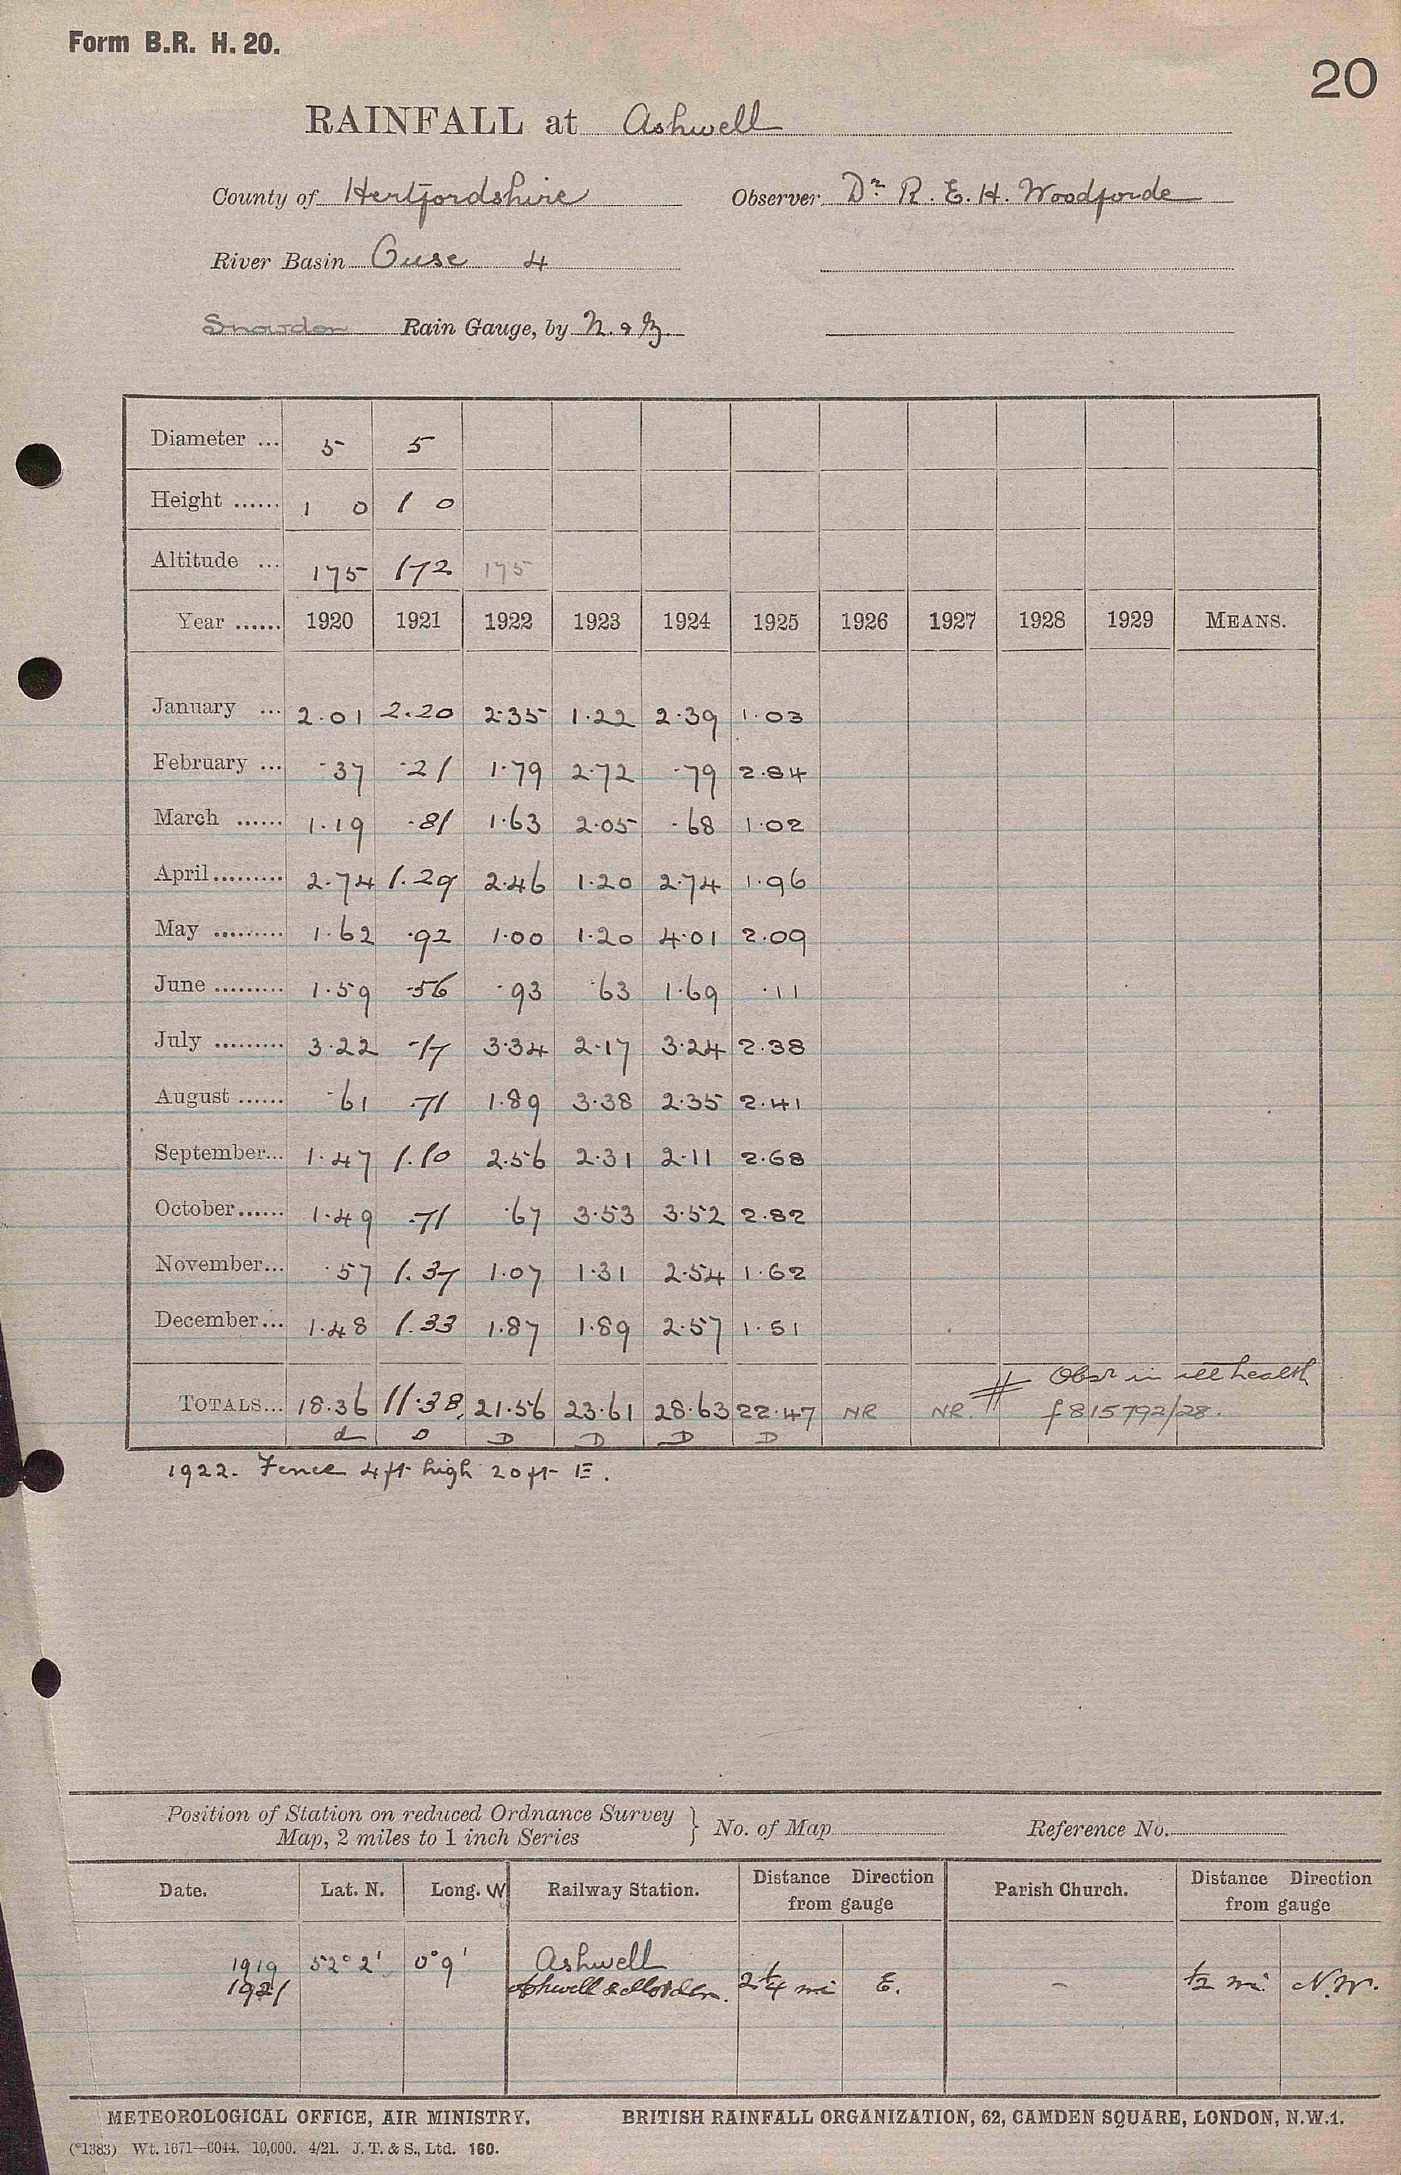 Form B.R. H. 20.
20
RAINFALL at Ashwell
County of Hertfordshire Observer Dr R. E. H. Woodforde
River Basin Ouse 4
Snowdon Rain Gauge, by N. & Z.
Diameter ... 5 5
Height ...... 1 0 1 0
Altitude ... 175 172 175
Year ...... 1920 1921 1922 1923 1924 1925 1926 1927 1928 1929 MEANS.
January ... 2.01 2.20 2.35 1.22 2.39 1.03
February ... .37 .21 1.79 2.72 .79 2.84
March ...... 1.19 .81 1.63 2.05 .68 1.02
April ......... 2.74 1.29 2.46 1.20 2.74 1.96
May ......... 1.62 .92 1.00 1.20 4.01 2.09
June ......... 1.59 .56 .93 .63 1.69 .11
July ......... 3.22 .17 3.34 2.17 3.24 2.38
August ...... .61 .71 1.89 3.38 2.35 2.41
September... 1.47 1.10 2.56 2.31 2.11 2.68
October...... 1.49 .71 .67 3.53 3.52 2.82
November... .57 1.37 1.07 1.31 2.54 1.62
December... 1.48 1.33 1.87 1.89 2.57 1.51
# Obsr in ill health
TOTALS... 18.36 11.38 21.56 23.61 28.63 22.47 NR NR. f 815792/28.
d D D D D D
1922. Fence 4ft high 20ft E.
Position of Station on reduced Ordnance Survey
Map, 2 miles to 1 inch Series } No. of Map Reference No.
Date. Lat. N. Long. W Railway Station. Distance Direction from gauge Parish Church. Distance Direction from gauge
1919 52° 2' 0° 9' Ashwell
1921 Ashwell & Morden. 2¼ mi E. – ½ mi. N.W.
METEOROLOGICAL OFFICE, AIR MINISTRY. BRITISH RAINFALL ORGANIZATION, 62, CAMDEN SQUARE, LONDON, N.W.1.
(*1383) Wt. 1671—6044. 10,000. 4/21. J. T. & S., Ltd. 160.